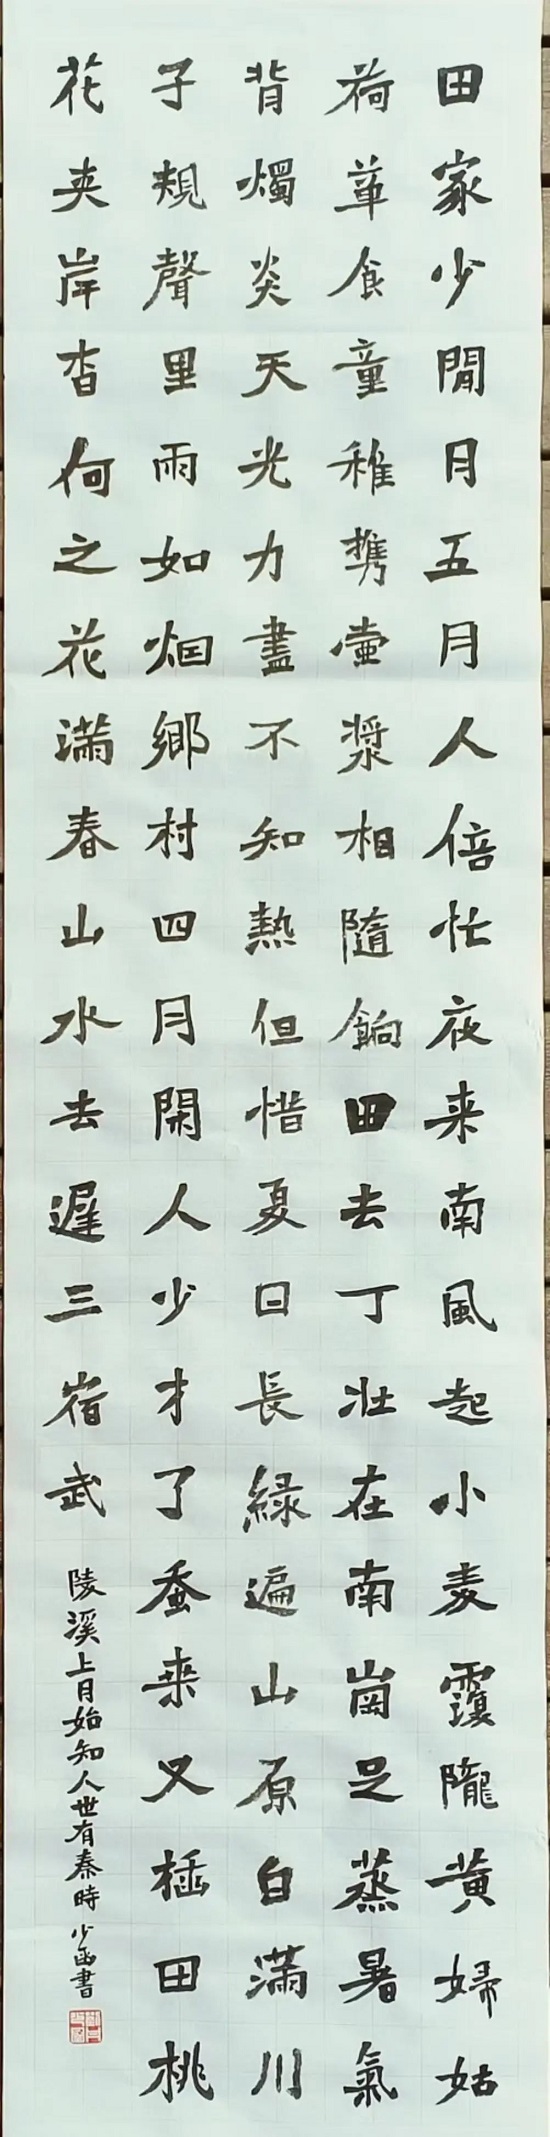 田家少閒月五月人倍忙夜来南風起小麦覆隴黄婦姑
荷葷食童稚携壷漿相隨餉田去丁壮在南崗足蒸暑氣
背燭炎天光力盡不知熱但惜夏日長緑遍山原白满川
子規聲里雨如烟鄉村四月閑人少才了蚕桒又插田桃
花夹岸杳何之花满春山水去遲三宿武
陵溪上月始知人世有秦時 少函書